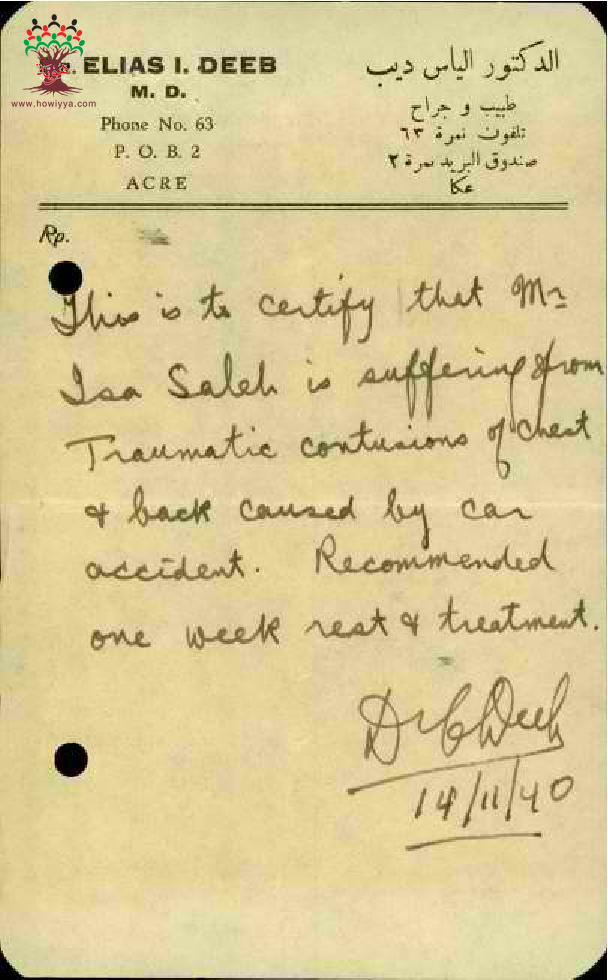 ELIAS I. DEEB
M. D.
Phone No. 63
P. O. B. 2
ACRE
الدكتور الياس ديب
طبيب و جراح
تلفون نمرة ٦٣
صندوق البريد نمرة ٢
عكا
www.howiyya.com
Rp.
This is to certify that Mr
Isa Saleh is suffering from
Traumatic contusions of chest
& back caused by car
accident. Recommended
one week rest & treatment.
Dr E Deeb
14/11/40